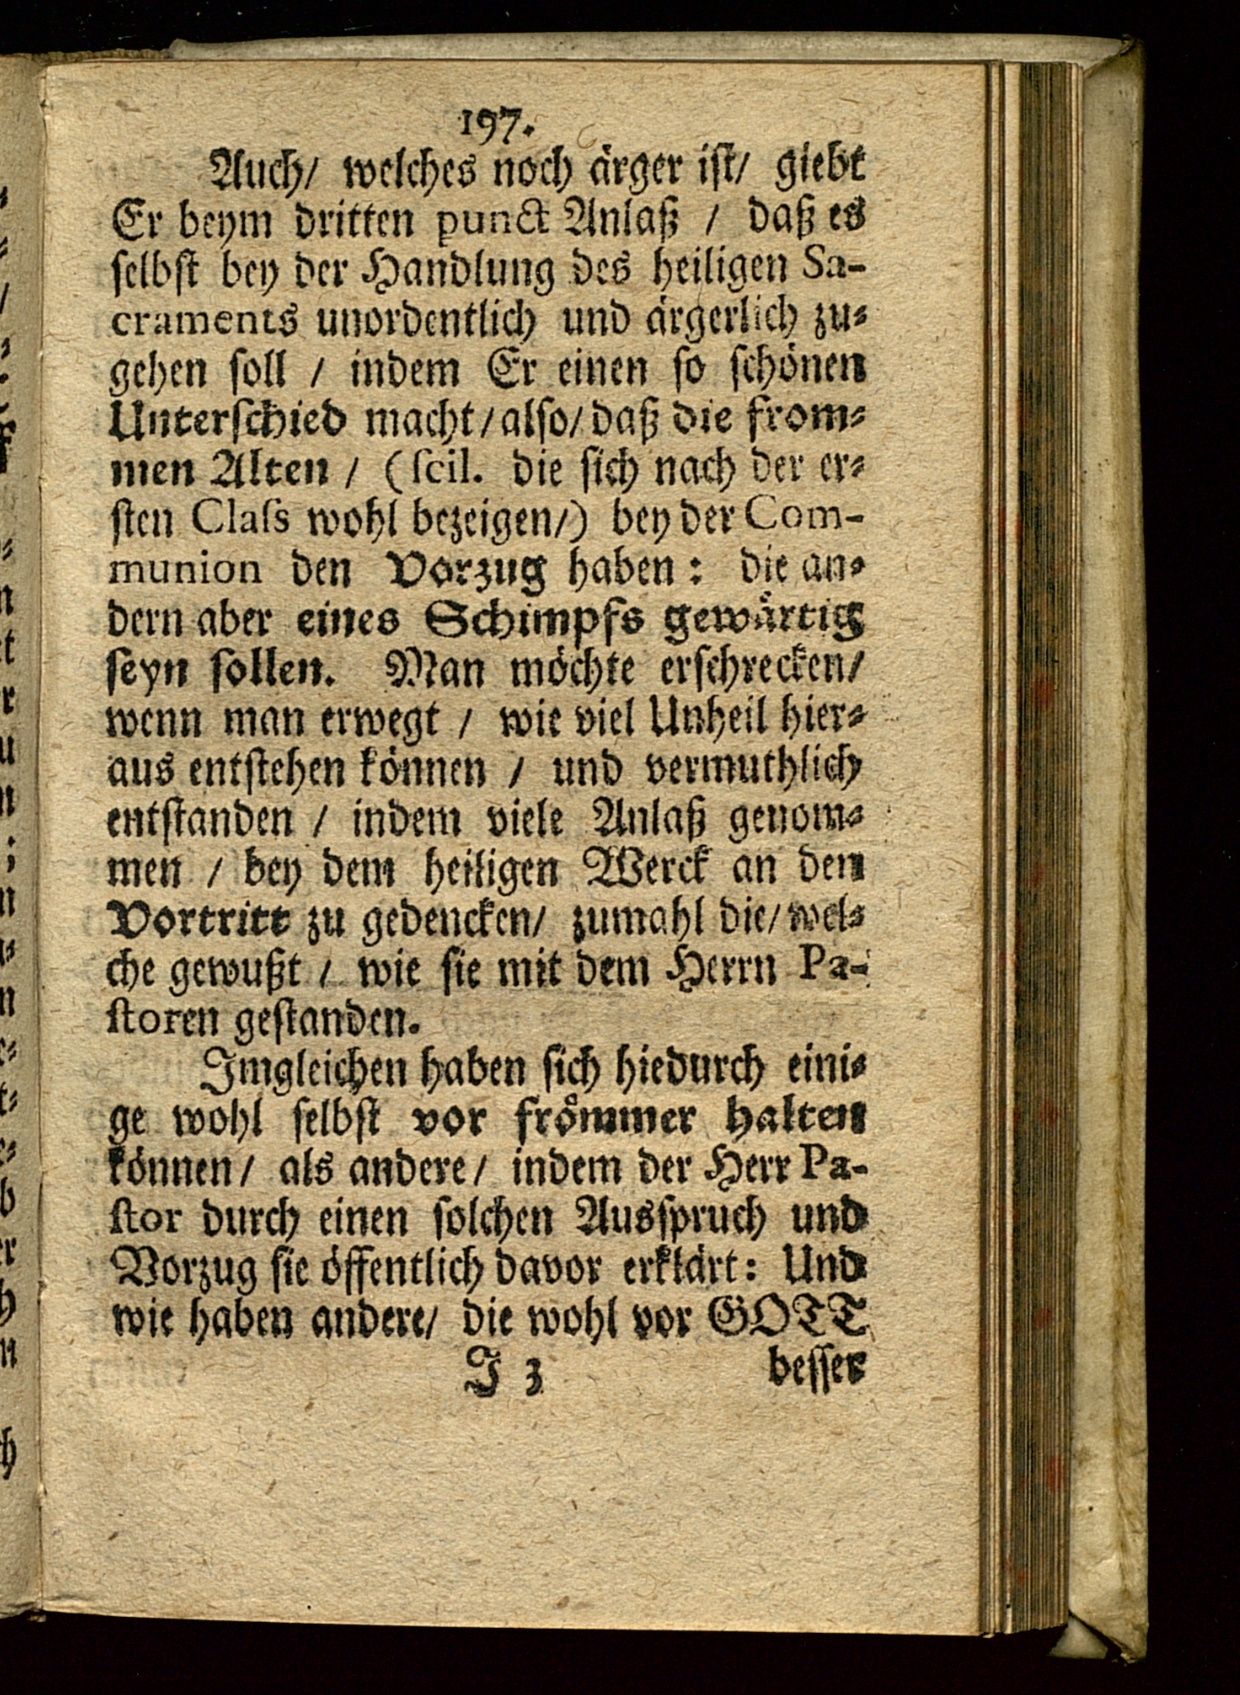 197.
Auch/ welches noch ärger ist/ giebt
Er beym dritten punct Anlaß / daß es
selbst bey der Handlung des heiligen Sa-
craments unordentlich und ärgerlich zu-
gehen soll / indem Er einen so schönen
Unterschied macht/also/daß die from-
men Alten / (scil. die sich nach der er-
sten Class wohl bezeigen/) bey der Com-
munion den Vorzug haben: die an-
dern aber eines Schimpfs gewärtig
seyn sollen. Man möchte erschrecken/
wenn man erwegt / wie viel Unheil hier-
aus entstehen können / und vermuthlich
entstanden / indem viele Anlaß genom-
men / bey dem heiligen Werck an den
Vortritt zu gedencken/ zumahl die/wel-
che gewußt / wie sie mit dem Herrn Pa-
storen gestanden.
Imgleichen haben sich hiedurch eini-
ge wohl selbst vor frömmer halten
können/ als andere/ indem der Herr Pa-
stor durch einen solchen Ausspruch und
Vorzug sie öffentlich davor erklärt: Und
wie haben andere/ die wohl vor GOTT
J 3 besser